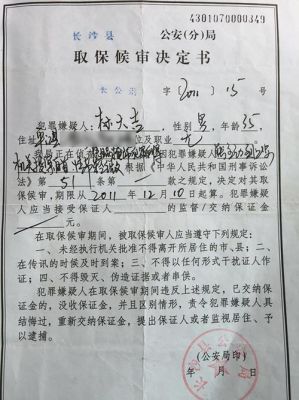 4301070000349
长沙县 公安(分)局
取保候审决定书
长公 字〔2011〕15号
犯罪嫌疑人: 杨 性别男, 年龄35,
住址 单位及职业 无
我局正在侦 因犯罪嫌疑人
根据《中华人民共和国刑事诉讼
法》第51条第 款之规定, 决定对其取
保候审, 期限从2011年12月10日起算。犯罪嫌
疑人应当接受保证人 的监督/交纳保证金
元。
在取保候审期间, 被取保候审人应当遵守下列规定:
一、未经执行机关批准不得离开所居住的市、县; 二、
在传讯的时候及时到案; 三、不得以任何形式干扰证人作
证; 四、不得毁灭、伪造证据或者串供。
犯罪嫌疑人在取保候审期间违反上述规定, 已交纳保
证金的, 没收保证金, 并且区别情形, 责令犯罪嫌疑人具
结悔过, 重新交纳保证金、提出保证人或者监视居住、予
以逮捕。
(公安局印)
年 月 日